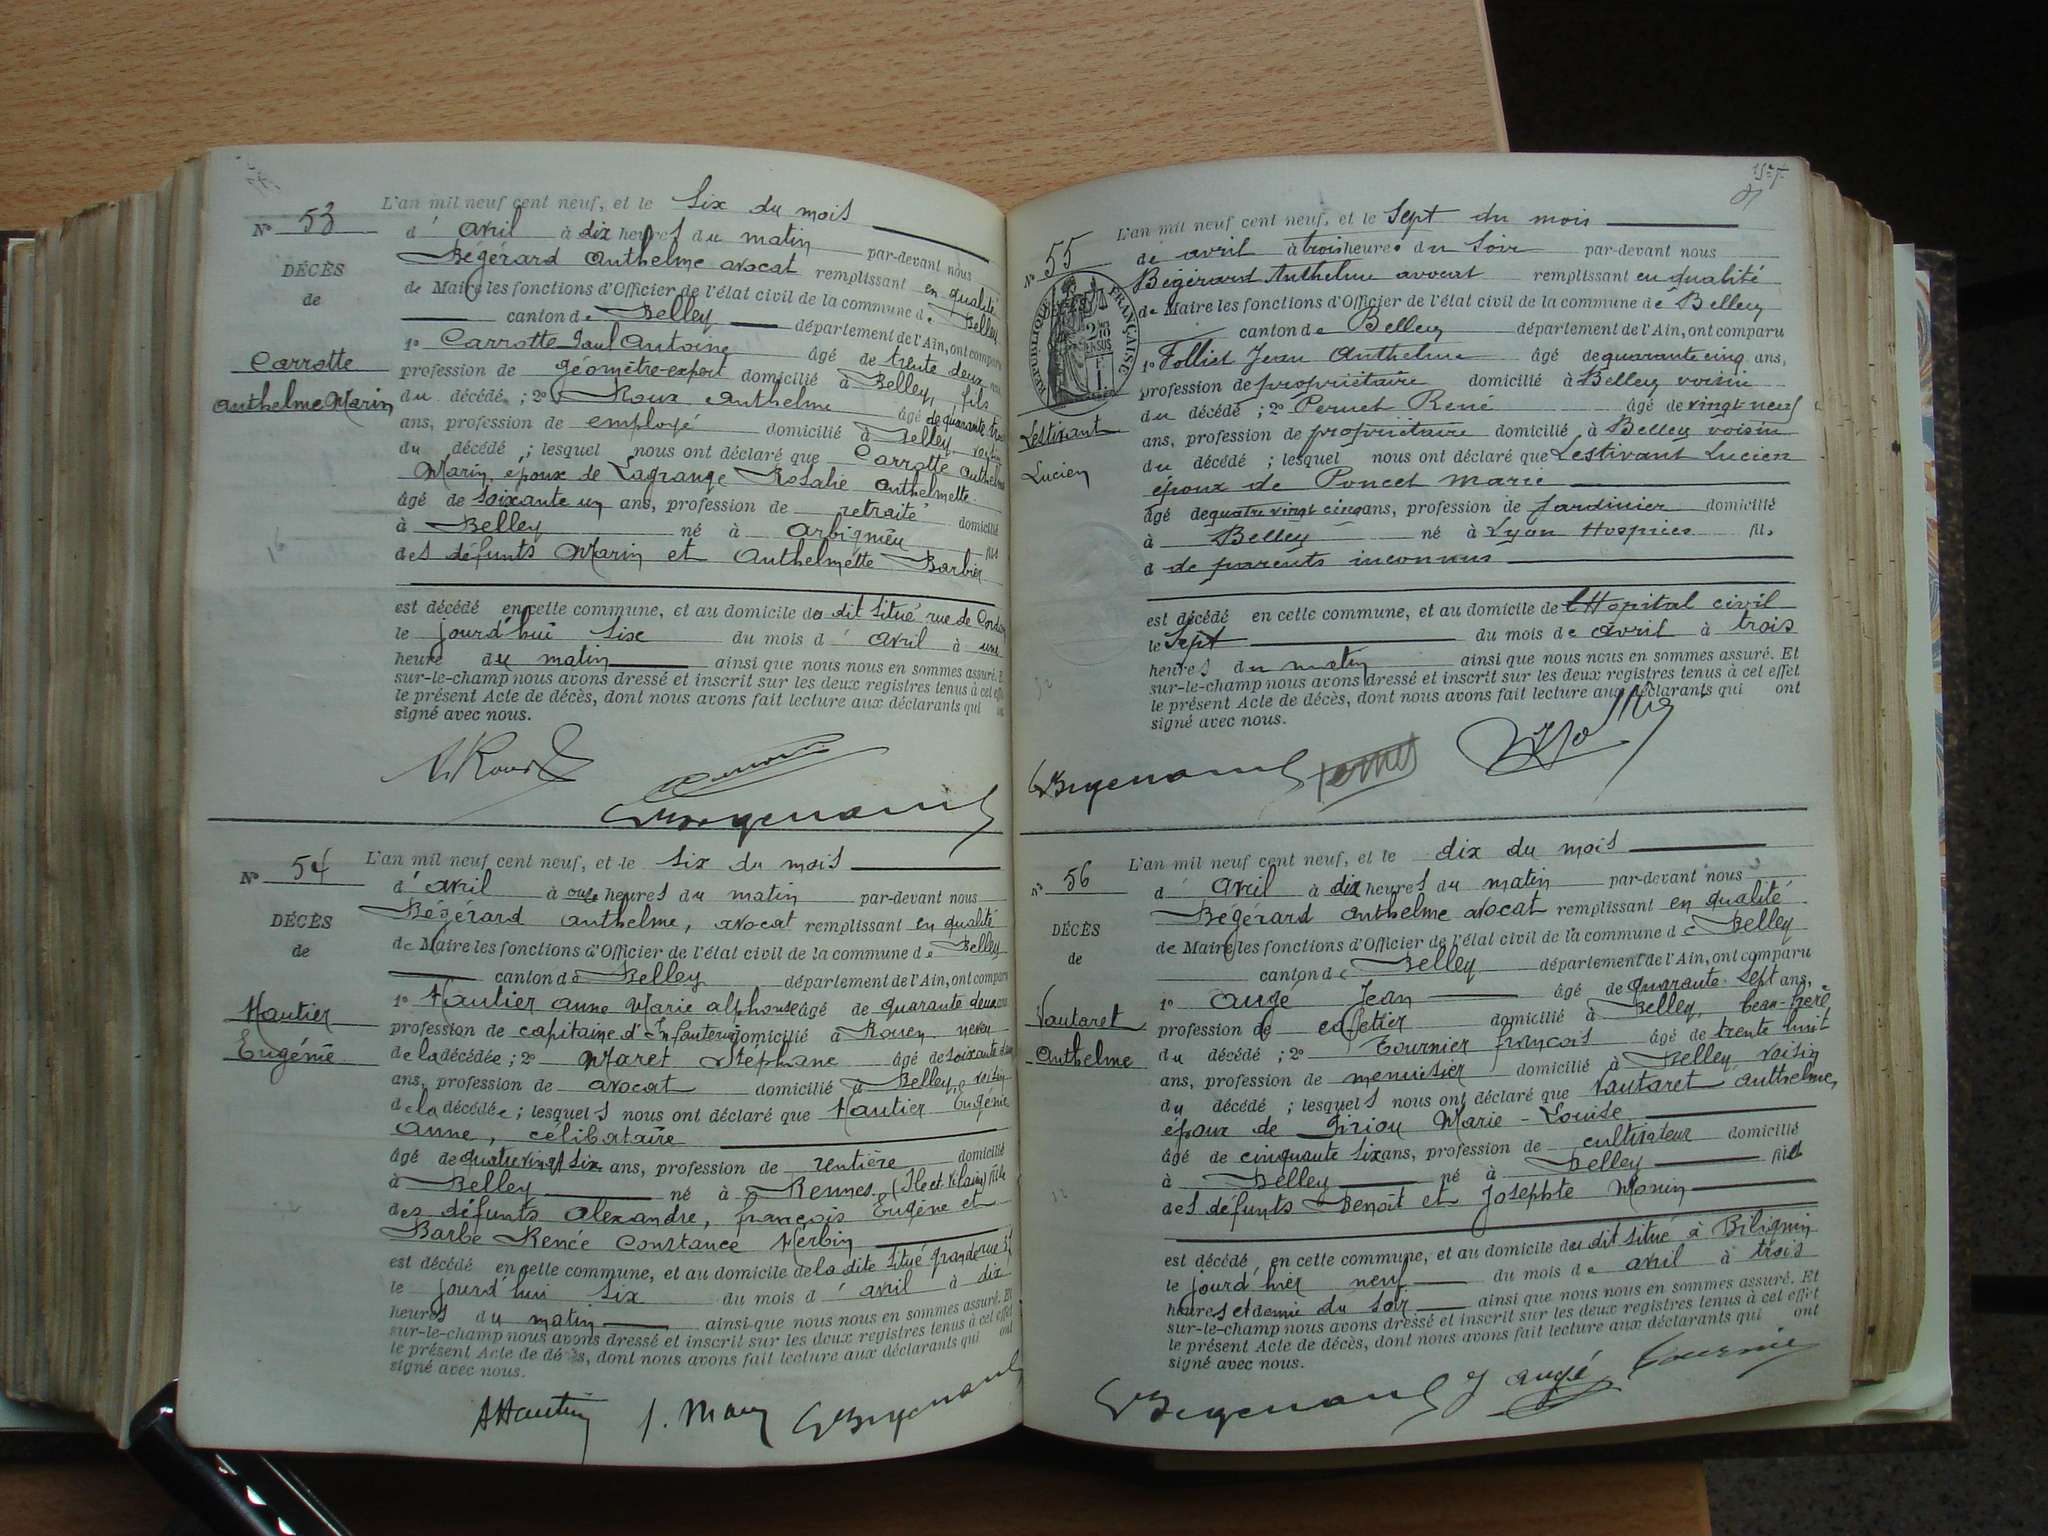 N° 53
DÉCÈS
de
Carrotte
Anthelme Marin
L'an mil neuf cent neuf, et le six du mois
d' avril à dix heures du matin par-devant nous
Bégérard Anthelme avocat remplissant en qualité
de Maire les fonctions d'Officier de l'état civil de la commune de Belley
canton de Belley département de l'Ain, ont comparu
1° Carrotte Paul Antoine âgé de trente deux ans
profession de géomètre-expert domicilié à Belley, fils
du décédé ; 2° Roux Anthelme âgé de quarante trois
ans, profession de employé domicilié à Belley, voisin
du décédé ; lesquel nous ont déclaré que Carrotte Anthelme
Marin, époux de Lagrange Rosalie Anthelmette
âgé de soixante un ans, profession de retraité domicilié
à Belley né à Arbignieu fils
des défunts Marin et Anthelmette Barbier
est décédé en cette commune, et au domicile du dit situé rue de
le jourd'hui six du mois d' avril à une
heure du matin ainsi que nous nous en sommes assuré. Et
sur-le-champ nous avons dressé et inscrit sur les deux registres tenus à cet effet
le présent Acte de décès, dont nous avons fait lecture aux déclarants qui ont
signé avec nous.
N° 54
DÉCÈS
de
Hautier
Eugénie
L'an mil neuf cent neuf, et le six du mois
d' avril à onze heures du matin par-devant nous
Bégérard Anthelme, avocat remplissant en qualité
de Maire les fonctions d'Officier de l'état civil de la commune de Belley
canton de Belley département de l'Ain, ont comparu
1° Hautier Anne Marie Alphonse âgé de quarante deux ans
profession de capitaine d'Infanterie domicilié à Rouen neveu
de la décédée ; 2° Maret Stéphane âgé de soixante
ans, profession de avocat domicilié à Belley, voisin
de la décédée ; lesquels nous ont déclaré que Hautier Eugénie
Anne, célibataire
âgé de quatre vingt six ans, profession de rentière domicilié
à Belley né à Rennes (Ile et Vilaine) fille
des défunts Alexandre, François Eugène et
Barbe Renée Constance Herbin
est décédé en cette commune, et au domicile de la dite situé grande rue
le jourd'hui six du mois d' avril à dix
heures du matin ainsi que nous nous en sommes assuré. Et
sur-le-champ nous avons dressé et inscrit sur les deux registres tenus à cet effet
le présent Acte de décès, dont nous avons fait lecture aux déclarants qui ont
signé avec nous.
AHautier
N° 55
RÉPUBLIQUE FRANÇAISE
Lestivant
Lucien
L'an mil neuf cent neuf, et le sept du mois
de avril à trois heures du soir par-devant nous
Bégérard Anthelme avocat remplissant en qualité
de Maire les fonctions d'Officier de l'état civil de la commune de Belley
canton de Belley département de l'Ain, ont comparu
1° Folliet Jean Anthelme âgé de quarante cinq ans,
profession de propriétaire domicilié à Belley voisin
du décédé ; 2° Pernet René âgé de vingt neuf
ans, profession de propriétaire domicilié à Belley voisin
du décédé ; lesquel nous ont déclaré que Lestivant Lucien
époux de Poncet Marie
âgé de quatre vingt cinq ans, profession de jardinier domicilié
à Belley né à Lyon Hospices fils
d de parents inconnus
est décédé en cette commune, et au domicile de l'Hopital civil
le Sept du mois de avril à trois
heures du matin ainsi que nous nous en sommes assuré. Et
sur-le-champ nous avons dressé et inscrit sur les deux registres tenus à cet effet
le présent Acte de décès, dont nous avons fait lecture aux déclarants qui ont
signé avec nous.
N° 56
DÉCÈS
de
Vautaret
Anthelme
L'an mil neuf cent neuf, et le dix du mois
d' avril à dix heures du matin par-devant nous
Bégérard Anthelme avocat remplissant en qualité
de Maire les fonctions d'Officier de l'état civil de la commune de Belley
canton de Belley département de l'Ain, ont comparu
1° Augé Jean âgé de quarante-sept ans,
profession de cafetier domicilié à Belley, beau-frère
du décédé ; 2° Tournier François âgé de trente huit
ans, profession de menuisier domicilié à Belley voisin
du décédé ; lesquels nous ont déclaré que Vautaret Anthelme,
époux de Marie-Louise
âgé de cinquante six ans, profession de cultivateur domicilié
à Belley né à Belley fils
des défunts Benoît et Josephte Monin
est décédé en cette commune, et au domicile du dit situé à Bilignin
le jourd'hier neuf du mois de avril à trois
heures et demie du soir ainsi que nous nous en sommes assuré. Et
sur-le-champ nous avons dressé et inscrit sur les deux registres tenus à cet effet
le présent Acte de décès, dont nous avons fait lecture aux déclarants qui ont
signé avec nous.
J Augé Tournier